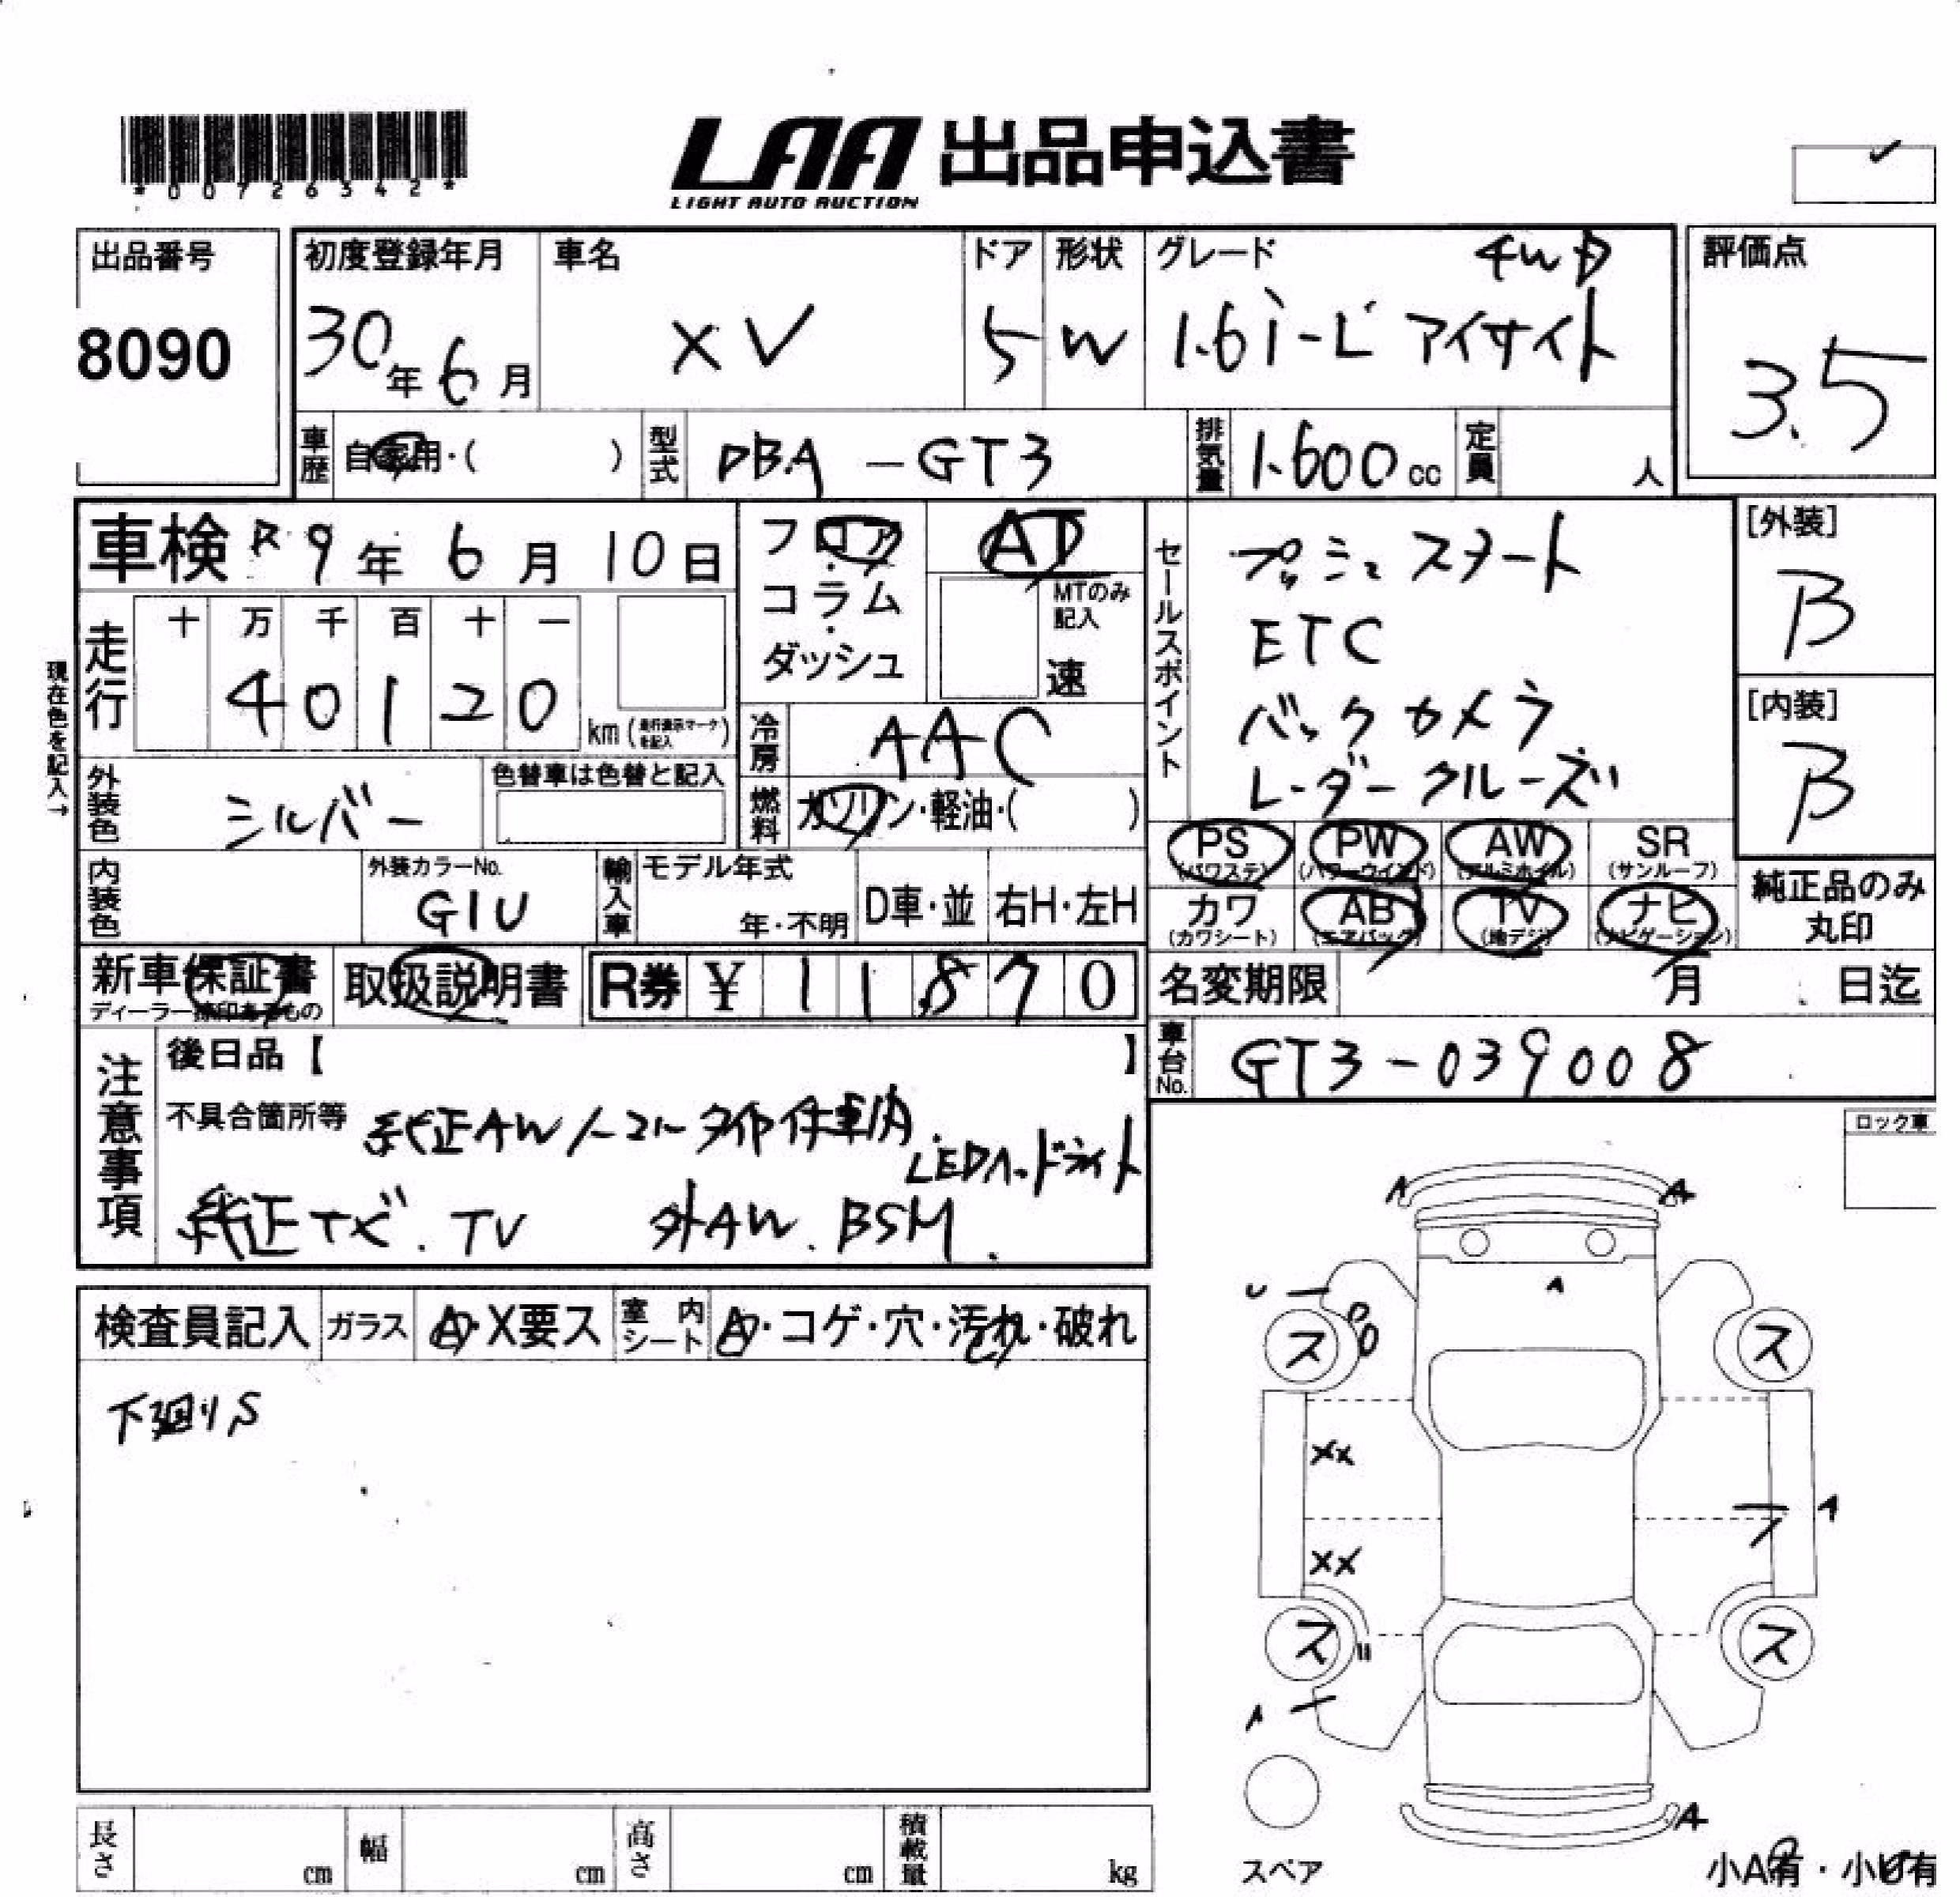 *00726342*
LAA 出品申込書
LIGHT AUTO AUCTION
出品番号
8090
初度登録年月
30年6月
車名
XV
ドア
5
形状
W
グレード 4WD
1.6i-L アイサイト
評価点
3.5
車歴 自家用・( )
型式 DBA-GT3
排気量 1.600cc
定員 人
車検 R9年6月10日
フロア
コラム
ダッシュ
AT
MTのみ記入
速
セールスポイント
プッシュスタート
ETC
バックカメラ
レーダークルーズ
[外装]
B
[内装]
B
現在色を記入→
走行
十 万 千 百 十 一
4 0 1 2 0
km(走行表示マークを記入)
冷房 AAC
燃料 ガソリン・軽油・( )
外装色 シルバー
色替車は色替と記入
内装色
外装カラーNo.
G1U
輸入車
モデル年式
年・不明
D車・並
右H・左H
PS (パワステ)
PW (パワーウインド)
AW (アルミホイル)
SR (サンルーフ)
カワ (カワシート)
AB (エアバッグ)
TV (地デジ)
ナビ (ナビゲーション)
純正品のみ
丸印
新車保証書
取扱説明書
R券 ¥ 1 1 8 7 0
名変期限 月 日迄
車台No. GT3-039008
注意事項
後日品【 】
不具合箇所等 純正AW ノーマルタイヤ付車内.
LEDヘッドライト
純正ナビ. TV 外AW. BSM.
ロック車
検査員記入
ガラス A・X要ス
室内シート A・コゲ・穴・汚れ・破れ
下廻りS
A A
U A
ス ス
XX
A
XX
ス ス
A
A
スペア
小A有・小U有
長さ cm
幅 cm
高さ cm
積載量 kg